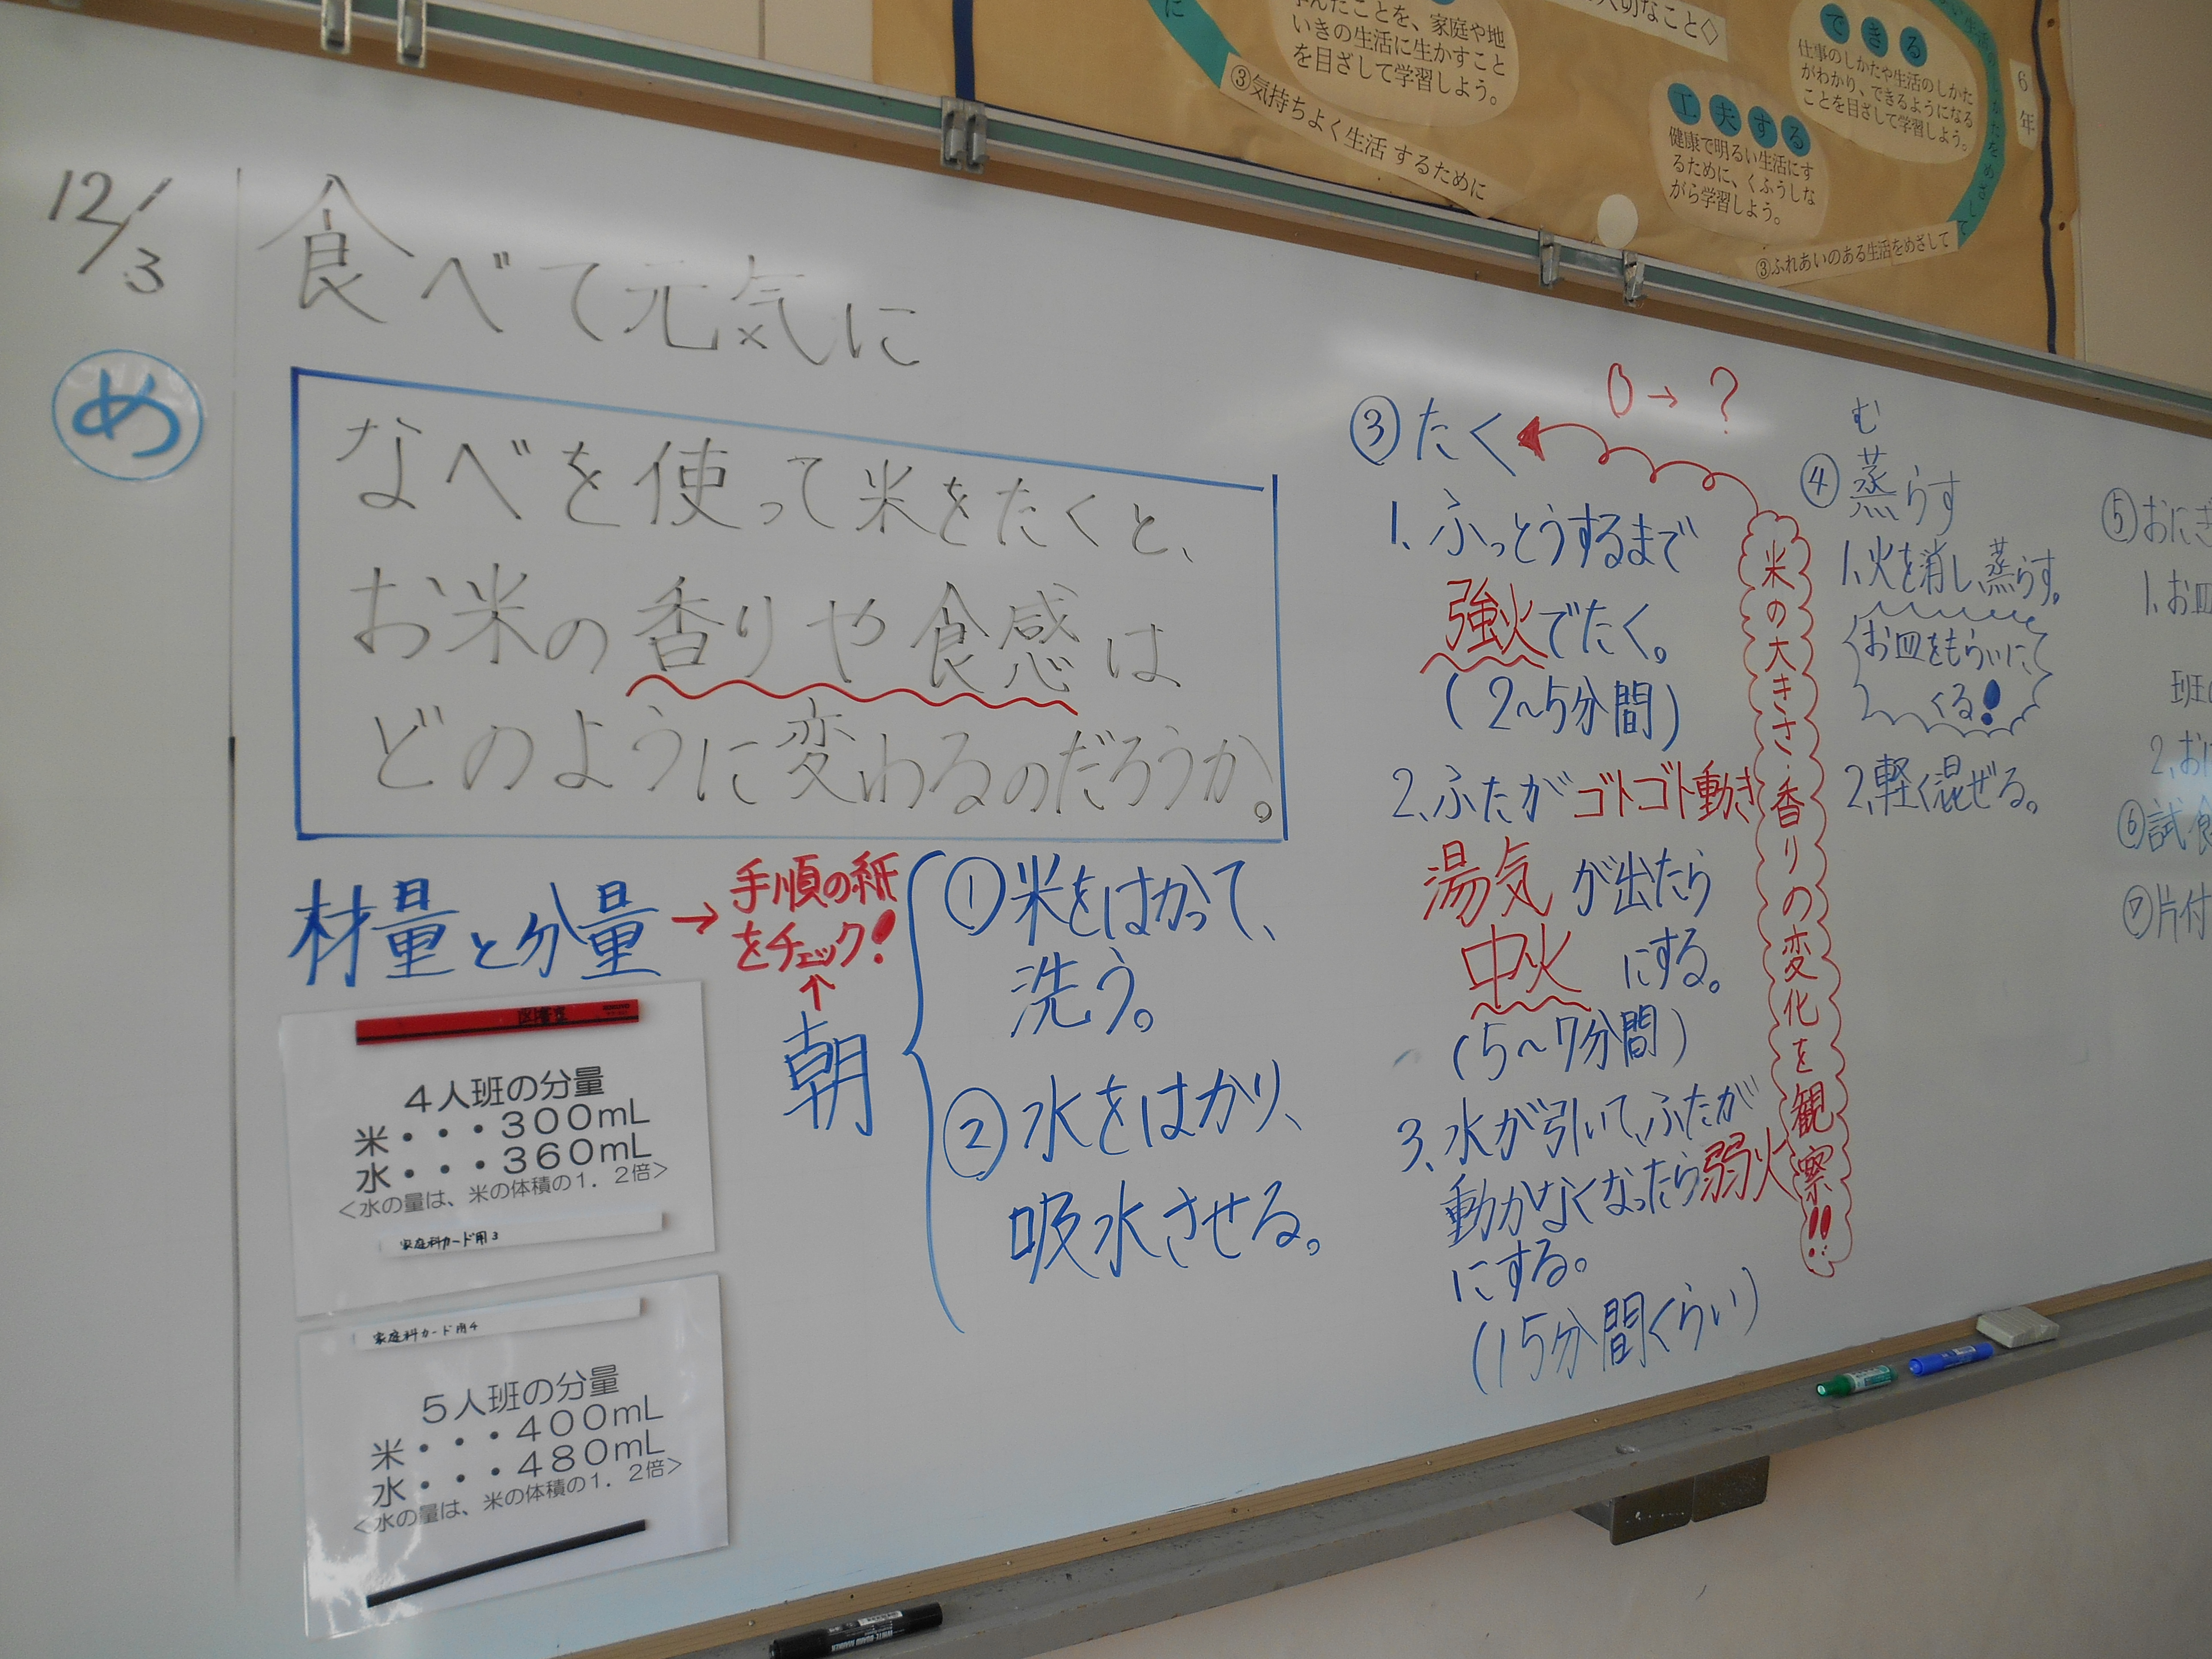 12/3
食べて元気に
め
なべを使って米をたくと、
お米の香りや食感は
どのように変わるのだろうか。
材量と分量
→手順の紙
をチェック!
↑
朝
4人班の分量
米・・・300mL
水・・・360mL
<水の量は、米の体積の1.2倍>
家庭科カード用3
家庭科カード用4
5人班の分量
米・・・400mL
水・・・480mL
<水の量は、米の体積の1.2倍>
①米をはかって、
洗う。
②水をはかり、
吸水させる。
③たく
1、ふっとうするまで
強火でたく。
(2〜5分間)
2、ふたがゴトゴト動き
湯気が出たら
中火にする。
(5〜7分間)
3、水が引いて、ふたが
動かなくなったら弱火
にする。
(15分間くらい)
0→?
米の大きさ・香りの変化を観察!!
む
④蒸らす
1、火を消し、蒸らす。
お皿をもらいに
くる!
2、軽く混ぜる。
⑤おにぎ
1、お皿
班
2、おに
⑥試食
⑦片付
に
んだことを、家庭や地
いきの生活に生かすこと
を目ざして学習しよう。
③気持ちよく生活するために
切なこと◇
できる
仕事のしかたや生活のしかた
がわかり、できるようになる
ことを目ざして学習しよう。
工夫する
健康で明るい生活にす
るために、くふうしな
がら学習しよう。
③ふれあいのある生活をめざして
6年